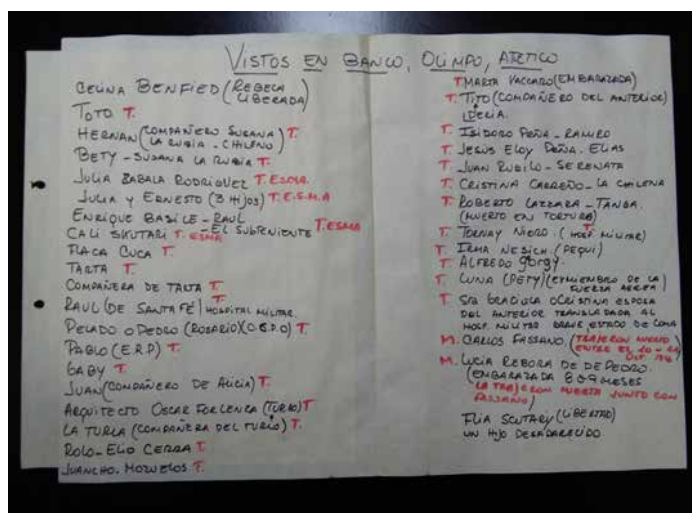 VISTOS EN BANCO, OLIMPO, ATETICO
CELINA BENFIED (REBECA
LIBERADA)
TOTO T.
HERNAN (COMPAÑERO SUSANA) T.
LA RUBIA - CHILENO)
BETY - SUSANA LA RUBIA T.
JULIA ZABALA RODRIGUEZ T. ESMA.
JULIA Y ERNESTO (3 HIJOS) T. E.S.M.A
ENRIQUE BASILE - RAUL
CALI SKUTARI T. ESMA - EL SUBTENIENTE T. ESMA
FLACA CUCA T.
TARTA T.
COMPAÑERA DE TARTA T.
RAUL (DE SANTA FÉ) T. HOSPITAL MILITAR.
PELADO O PEDRO (ROSARIO) (O.C.P.O) T.
PABLO (E.R.P) T.
GABY T.
JUAN (COMPAÑERO DE ALICIA) T.
ARQUITECTO OSCAR FORLENCA (TURIO) T.
LA TURCA (COMPAÑERA DEL TURIO) T.
ROLO - ELIO CERRA T.
JUANCHO. MOZUELOS T.
T MARTA VACCARO (EMBARAZADA)
T. TITO (COMPAÑERO DEL ANTERIOR)
DELIA.
T. ISIDORO PEÑA - RAMIRO
T. JESUS ELOY PEÑA. ELIAS
T. JUAN RUBILO - SERENATA
T. CRISTINA CARREÑO - LA CHILENA
T. ROBERTO LAZZARA - TANGA.
(MUERTO EN TORTURA)
T. TORNAY NIGRO. (T. HOSP. MILITAR)
T. IRMA NESICH. (PEQUI)
T. ALFREDO GIORGY.
T. LUNA (PETY) (EXMIEMBRO DE LA)
FUERZA AEREA
T. SRA GRACIELA O CRISTINA ESPOSA
DEL ANTERIOR TRANSLADADA AL
HOSP. MILITAR GRAVE ESTADO DE COMA
M. CARLOS FASSANO. (TRAJERON MUERTO
ENTRE EL 10 -
M. LUCIA REBORA DE DE PEDRO.
(EMBARAZADA 8 O 9 MESES
LA TRAJERON MUERTA JUNTO CON
FASSANO)
FLIA SCUTARY (LIBERTAD)
UN HIJO DESAPARECIDO